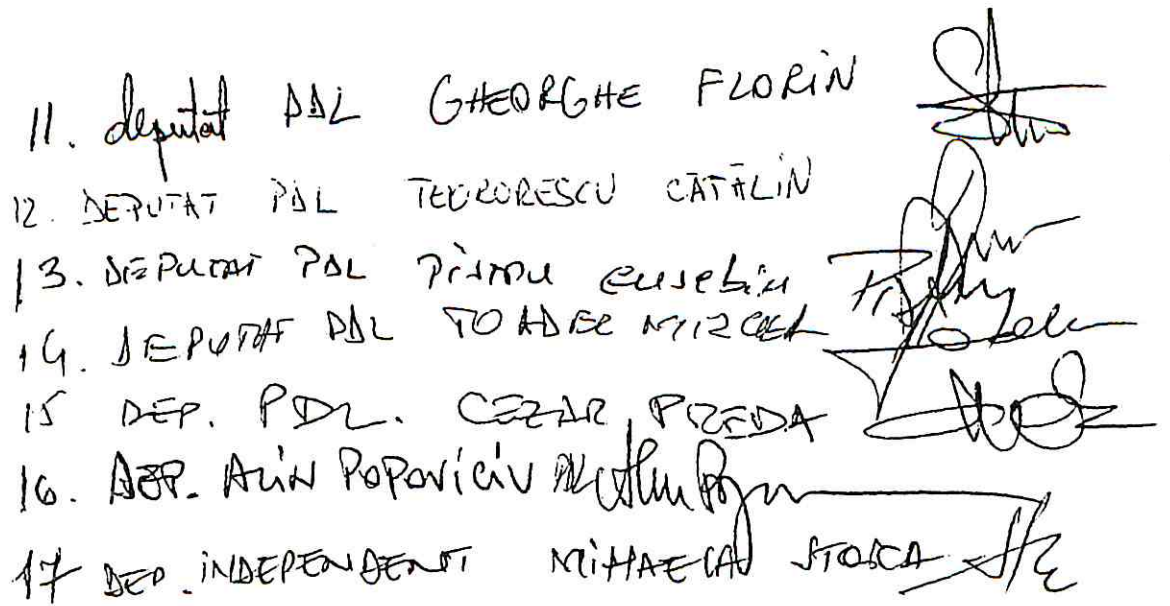 11. deputat PDL GHEORGHE FLORIN
12. DEPUTAT PDL TEODORESCU CĂTĂLIN
13. DEPUTAT PDL Pirvu eusebiu
14. DEPUTAT PDL TOADER MIRCEA
15 DEP. PDL. CEZAR PREDA
16. DEP. ALIN POPOVICIU PDL
17 DEP. INDEPENDENT MIHAELA STOICA